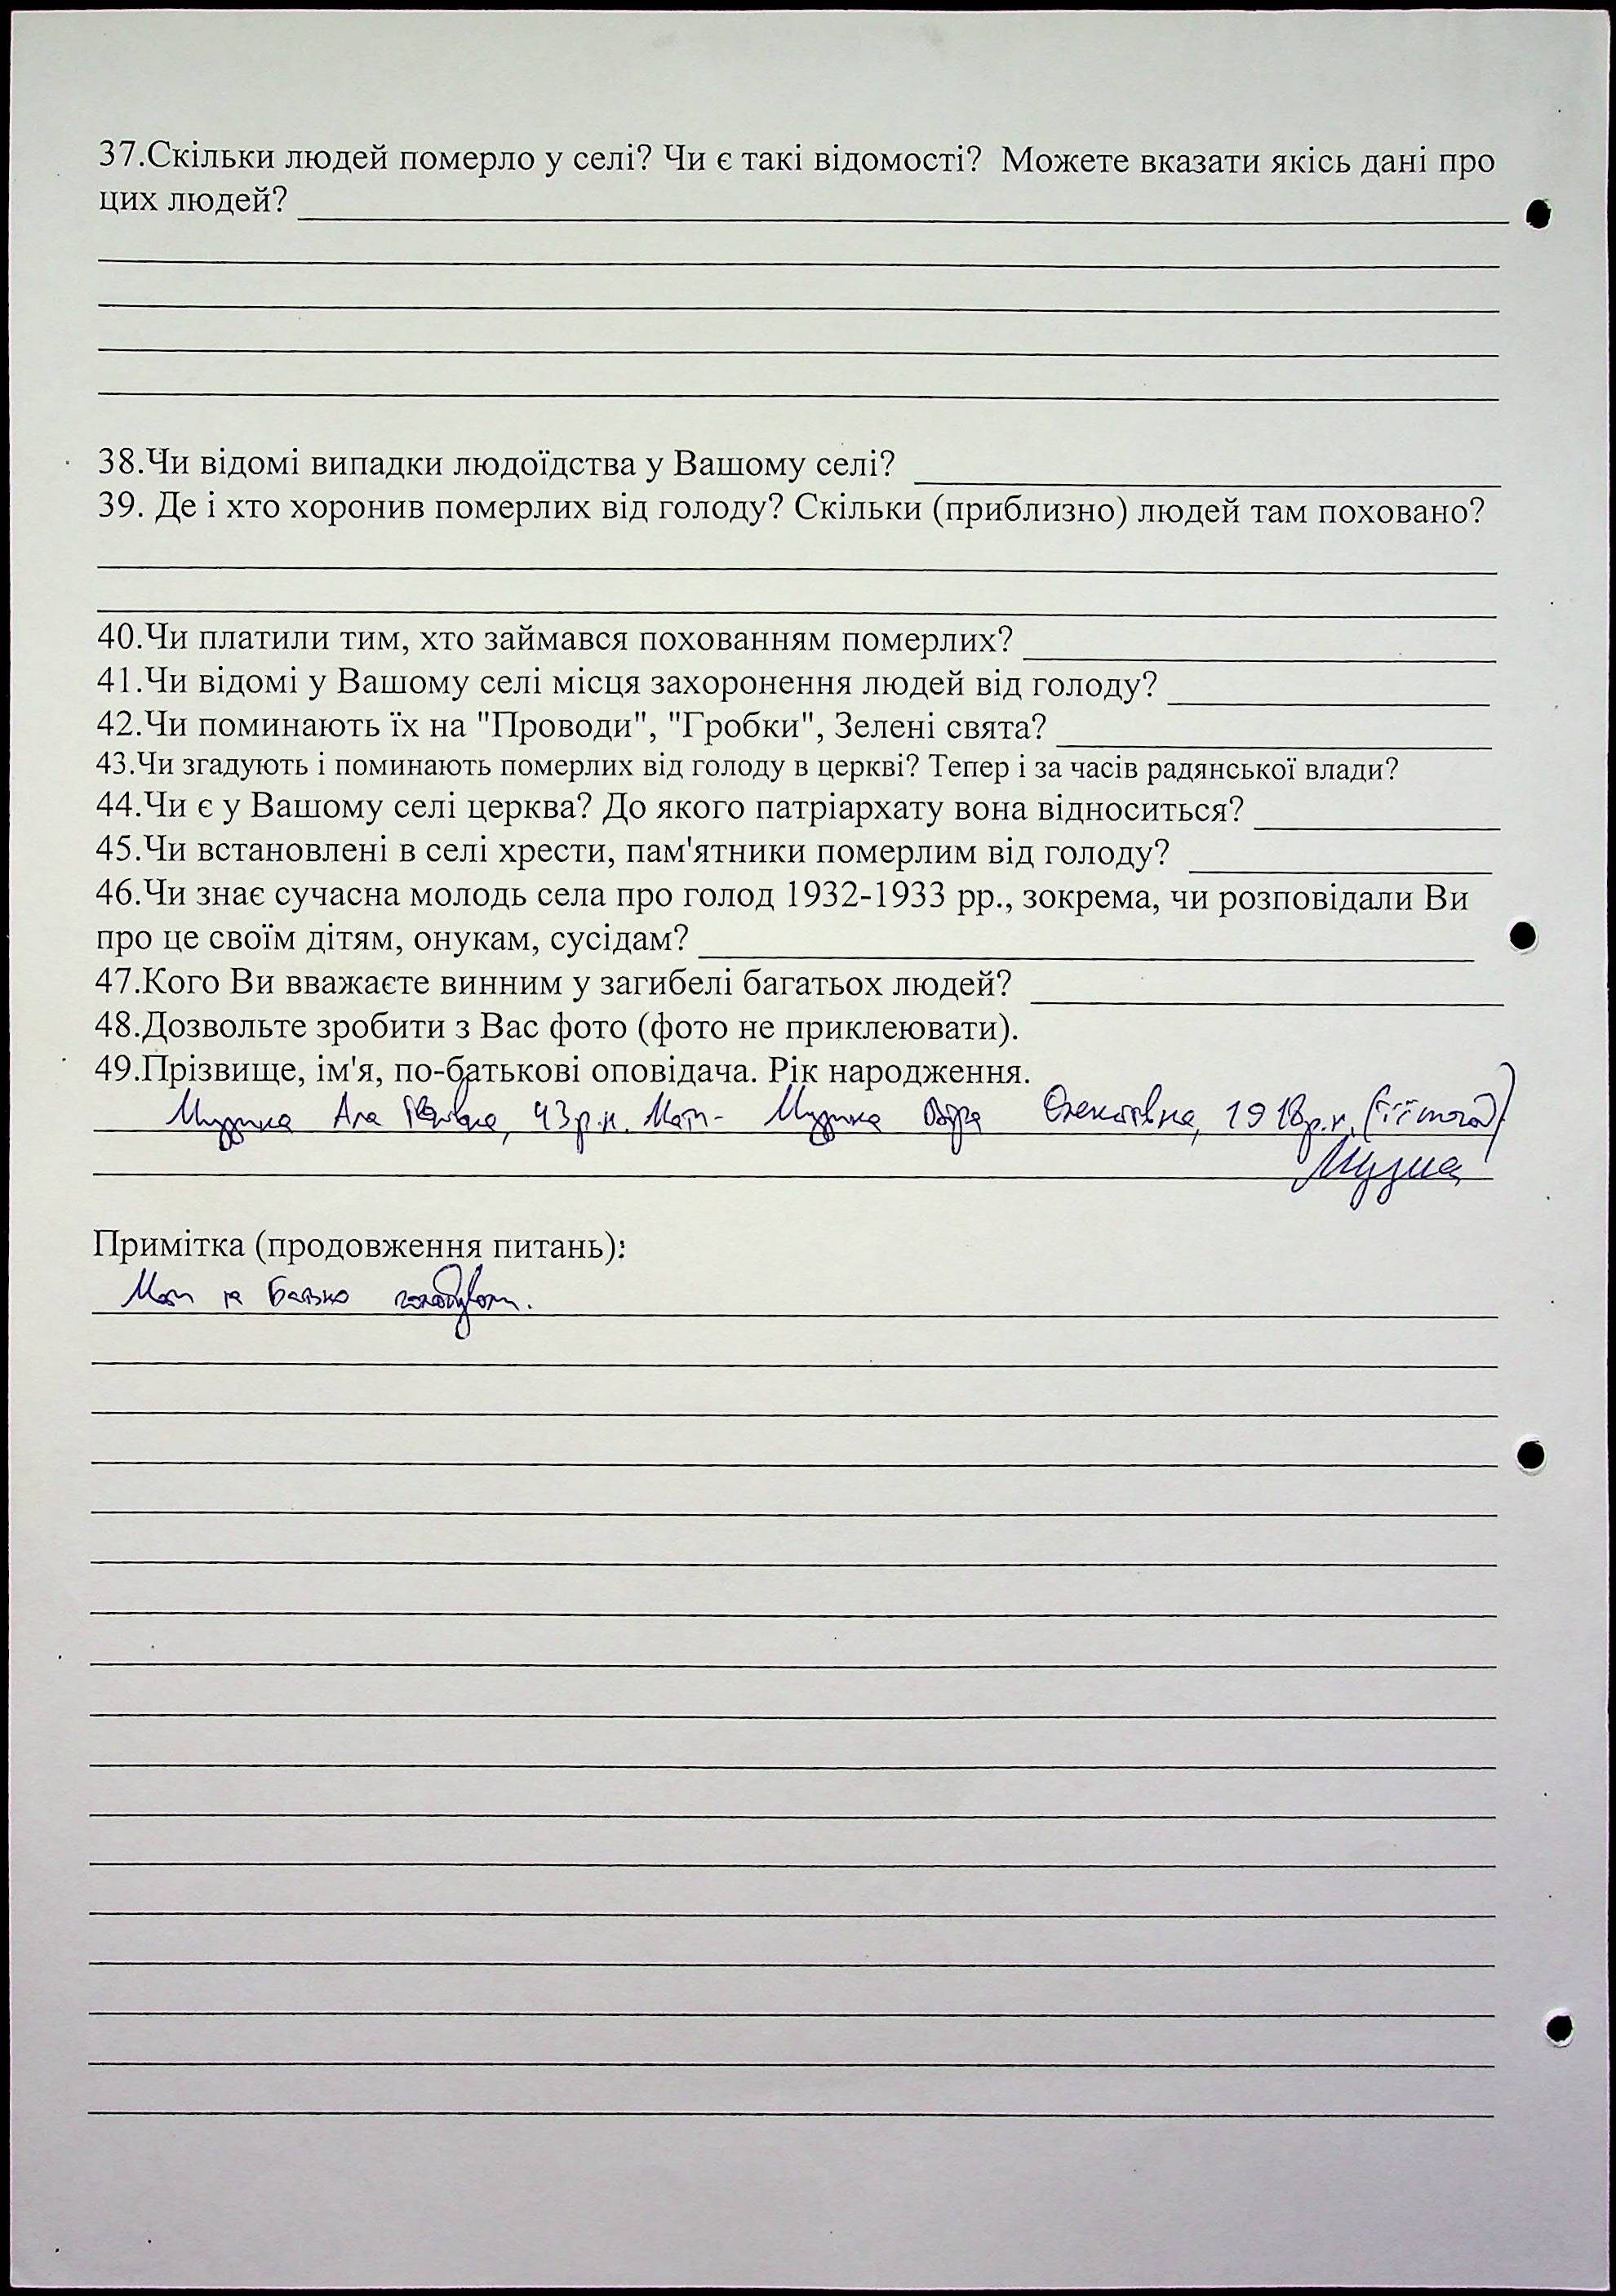 37.Скільки людей померло у селі? Чи є такі відомості? Можете вказати якісь дані про
цих людей?
38.Чи відомі випадки людоїдства у Вашому селі?
39. Де і хто хоронив померлих від голоду? Скільки (приблизно) людей там поховано?
40.Чи платили тим, хто займався похованням померлих?
41.Чи відомі у Вашому селі місця захоронення людей від голоду?
42.Чи поминають їх на "Проводи", "Гробки", Зелені свята?
43.Чи згадують і поминають померлих від голоду в церкві? Тепер і за часів радянської влади?
44.Чи є у Вашому селі церква? До якого патріархату вона відноситься?
45.Чи встановлені в селі хрести, пам'ятники померлим від голоду?
46.Чи знає сучасна молодь села про голод 1932-1933 рр., зокрема, чи розповідали Ви
про це своїм дітям, онукам, сусідам?
47.Кого Ви вважаєте винним у загибелі багатьох людей?
48.Дозвольте зробити з Вас фото (фото не приклеювати).
49.Прізвище, ім'я, по-батькові оповідача. Рік народження.
43 р.н. Мати - Віра Олексіївна, 1918 р.н.
Примітка (продовження питань):
Мати та батько голодували.